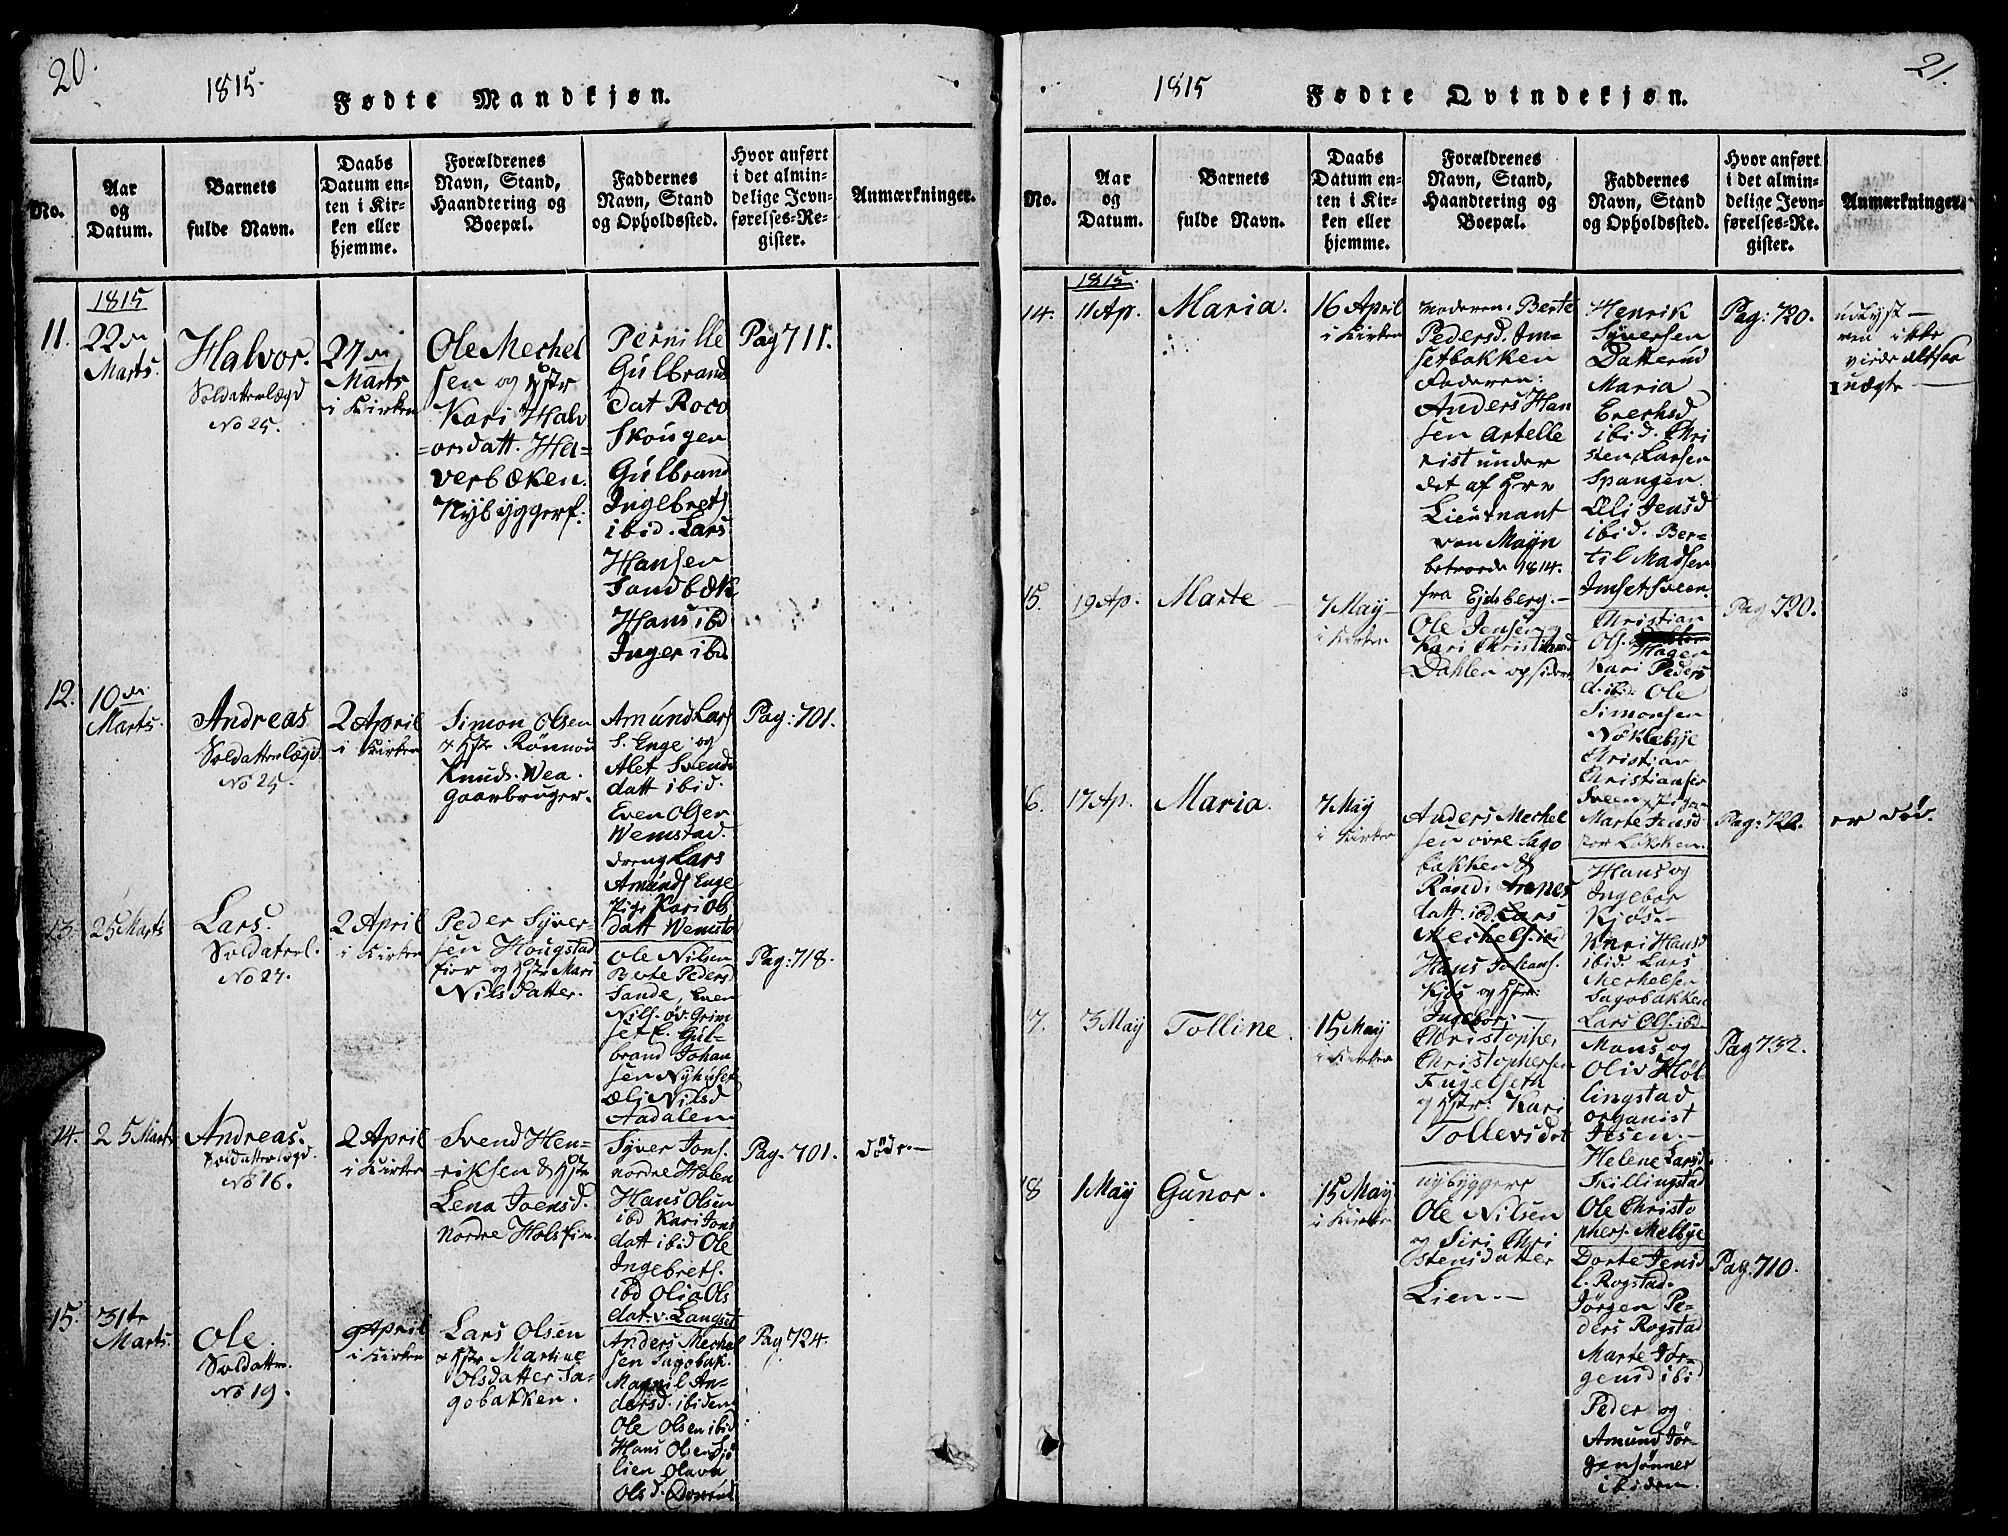 20.
1815.
Fødte Mandkjøn.
No.
Aar
og
Datum.
Barnets
fulde Navn.
Daabs
Datum en-
ten i Kir-
ken eller
hjemme.
Forældrenes
Navn, Stand,
Haandtering og
Boepæl.
Faddernes
Navn, Stand
og Opholdssted.
Hvor anført
i det almin-
delige Jevn-
førelses-Re-
gister.
Anmærkninger.
1815
11.
22de
Marts.
Halvor.
Soldatterlægd
No 25.
27de
Marts
i Kirken
Ole Mechel
sen og Hstr
Kari Halv
=orsdatt. Ha=
verbæken.
Nybyggerf.
Pernille
Gulbrand
dat Roco
Skougen
Gulbrand
Ingebrets
ibid. Lars
Hansen
Sandbæk
Hans ibd
Inger ibd
Pag 711.
12.
10de
Marts.
Andreas
Soldatterlægd
No 25.
2 April
i Kirken
Simon Olsen
& Hstr Rønnou
Knuds. Wea.
Gaarbruger.
Amund Lars
s. Enge og
Alet Svends
datt ibid.
Even Olsen
Wemstad.
dreng Lars
Amunds Enge
Pige Kari Ols
datt Wemsta
Pag: 701.
13.
25 Marts
Lars.
Soldatrel.
No 27.
2 April
i Kirken
Peder Syver-
sen Hougstad
fior og Hstr Mari
Nilsdatter.
Ole Nilsen
Berte Peders
Sande, Even
Nils. øv. Grim
set E. Gul-
brand Johan
sen Nyhuset
Æli Nilsd
Aadalen
Pag: 718.
14.
25 Marts
Andreas.
Soldatterlægd.
No 16.
2 April
i Kirken
Svend Hen-
riksen & Hstr
Lena Joensd.
Nordre Holsfim.
Syver Jons.
nordre Holen
Hans Olsen
ibd Kari Jons
datt ibid Ole
Ingebrets.
ibd Olia Ols
dat. v. Langset
Pag. 701.
døde—
15.
31te
Marts.
Ole.
Soldatter.
No 19.
9 April
i Kirken
Lars Olsen
& Hstr Martine
Olsdatter Sa-
gobakken.
Anders Mechel
sen Sagobak.
Magnil An-
dersd. ibidem
Ole Olsen ibid
Hans Olsen Sjø
lien Olava
Olsd.
Pag 724.
21.
1815
Fødte Qvindekjøn.
No.
Aar
og
Datum.
Barnets
fulde Navn.
Daabs
Datum en-
ten i Kir-
ken eller
hjemme.
Forældrenes
Navn, Stand,
Haandtering og
Boepæl.
Faddernes
Navn, Stand
og Opholdssted.
Hvor anført
i det almin-
delige Jevn-
førelses-Re-
gister.
Anmærkninger.
1815.
14.
11 Ap.
Maria.
16 April
i Kirken
Moderen: Berte
Pedersd. Im-
setbakken
Faderen:
Anders Han
sen Artelle
rist under
det af Hrr
Lieutnant
von Mayn
betroede 1814.
fra Ejdsberg.—
Henrik
Syversen
Datterud
Maria
Erechsd
ibid. Chri
sten Larsen
Spangen.
Æli Jensd
ibid. Ber-
til Madsen
Imset sveen.
Pag: 720.
udlyst—
men ikke
viede altsaa
uægte—
15.
19 Ap.
Marte—
7 May—
i Kirken
Ole Jensen og
Kari Christiansd
Dahlen opsidere
Christian
Ols.
Hagen
Kari Peders
d. ibid. Ole
Simonsen
Nøklebye
Christian
Christiansen
Sveen, Pigen
Marte Jensd
Løkken.
Pag 720.
6.
17 Ap.
Maria.
7 May
i Kirken
Anders Mechel
sen øvre Sago
bakken &
Randi Arnes
datt. ibd Lars
Mechels. ibd
Hans Johans.
Kjøs og Hstr:
Ingebor:—
Hans og
Ingebor
Kjøs.—
Kari Hansd
ibid. Lars
Mechelsen
Sagobakken
Lars Ols. ibd.
Pag: 722.
er død.
17.
3 May
Tolline.
15 May
i Kirken
Christopher
Christophersen
Fugelseth
og Hstr: Kari
Tollevsdat
Mons og
Oliv Høl-
lingstad
organist
Jesen.—
Helene Larsd.
Skillingstad
Ole Christo
phers. Melbye
Pag 732.
18
1 May
Gunor.
15 May
i Kirken
nybyggere
Ole Nilsen
og Siri Chri
stensdatter
Lien.—
Dorte Jensd
l. Rogstad.
Jørgen Pe-
ders Rogstad
Marte Jør-
gensd ibid
Peder og
Amund Jør-
gensønner
ibidem.
Pag: 710.